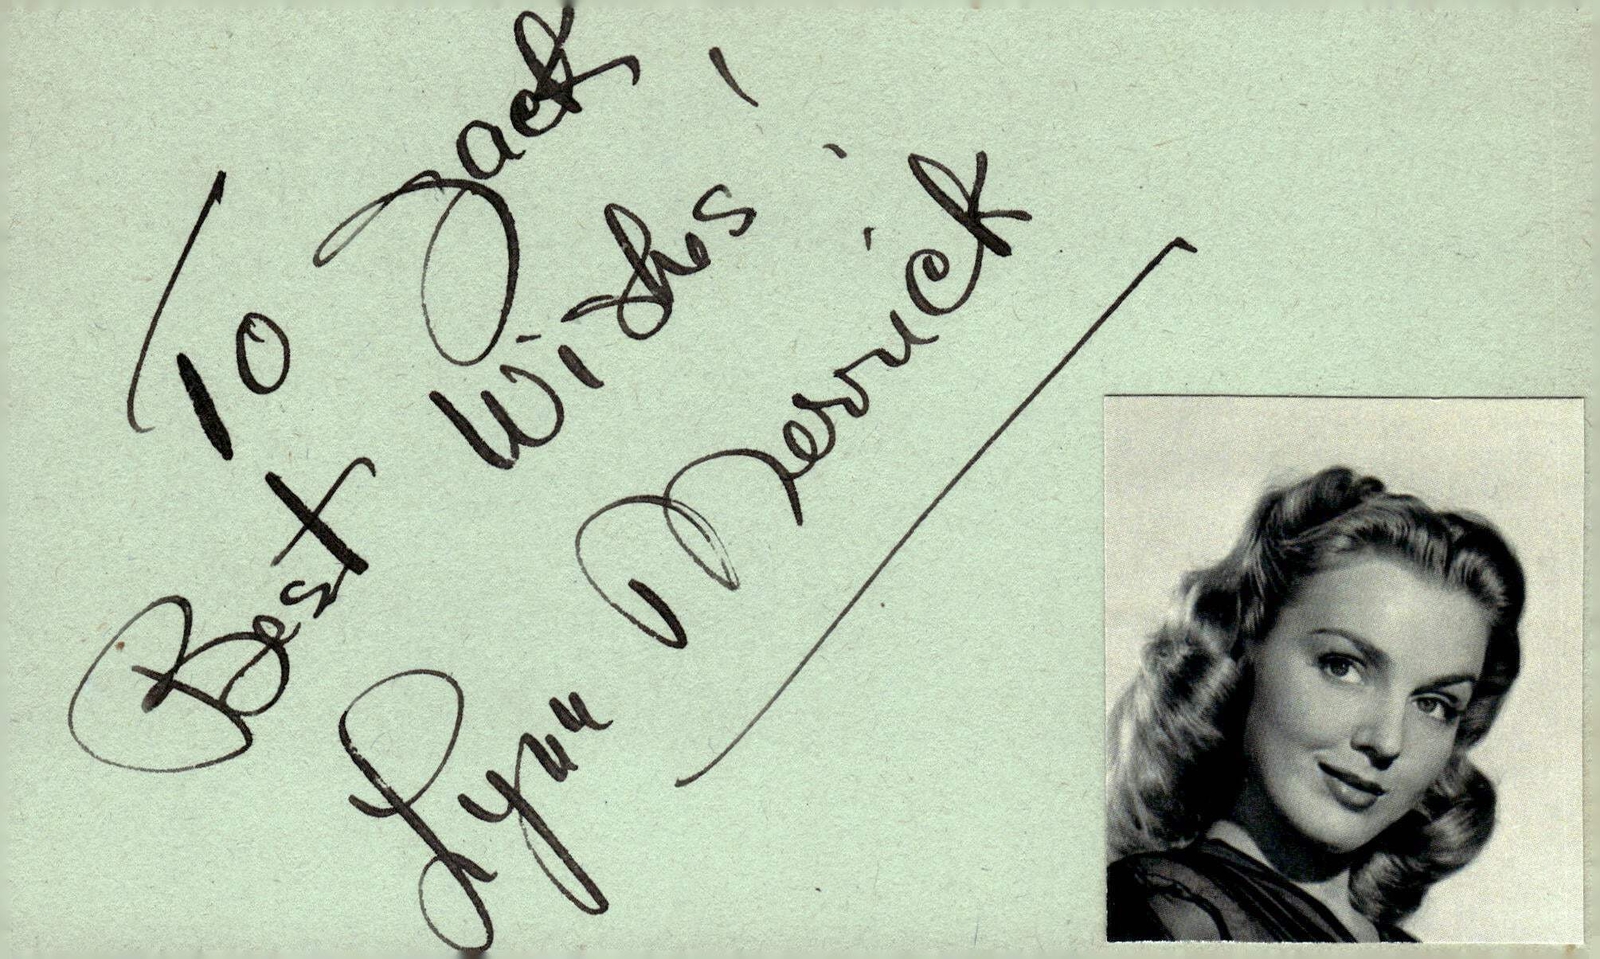 To Jack
Best Wishes!
Lynn Merrick